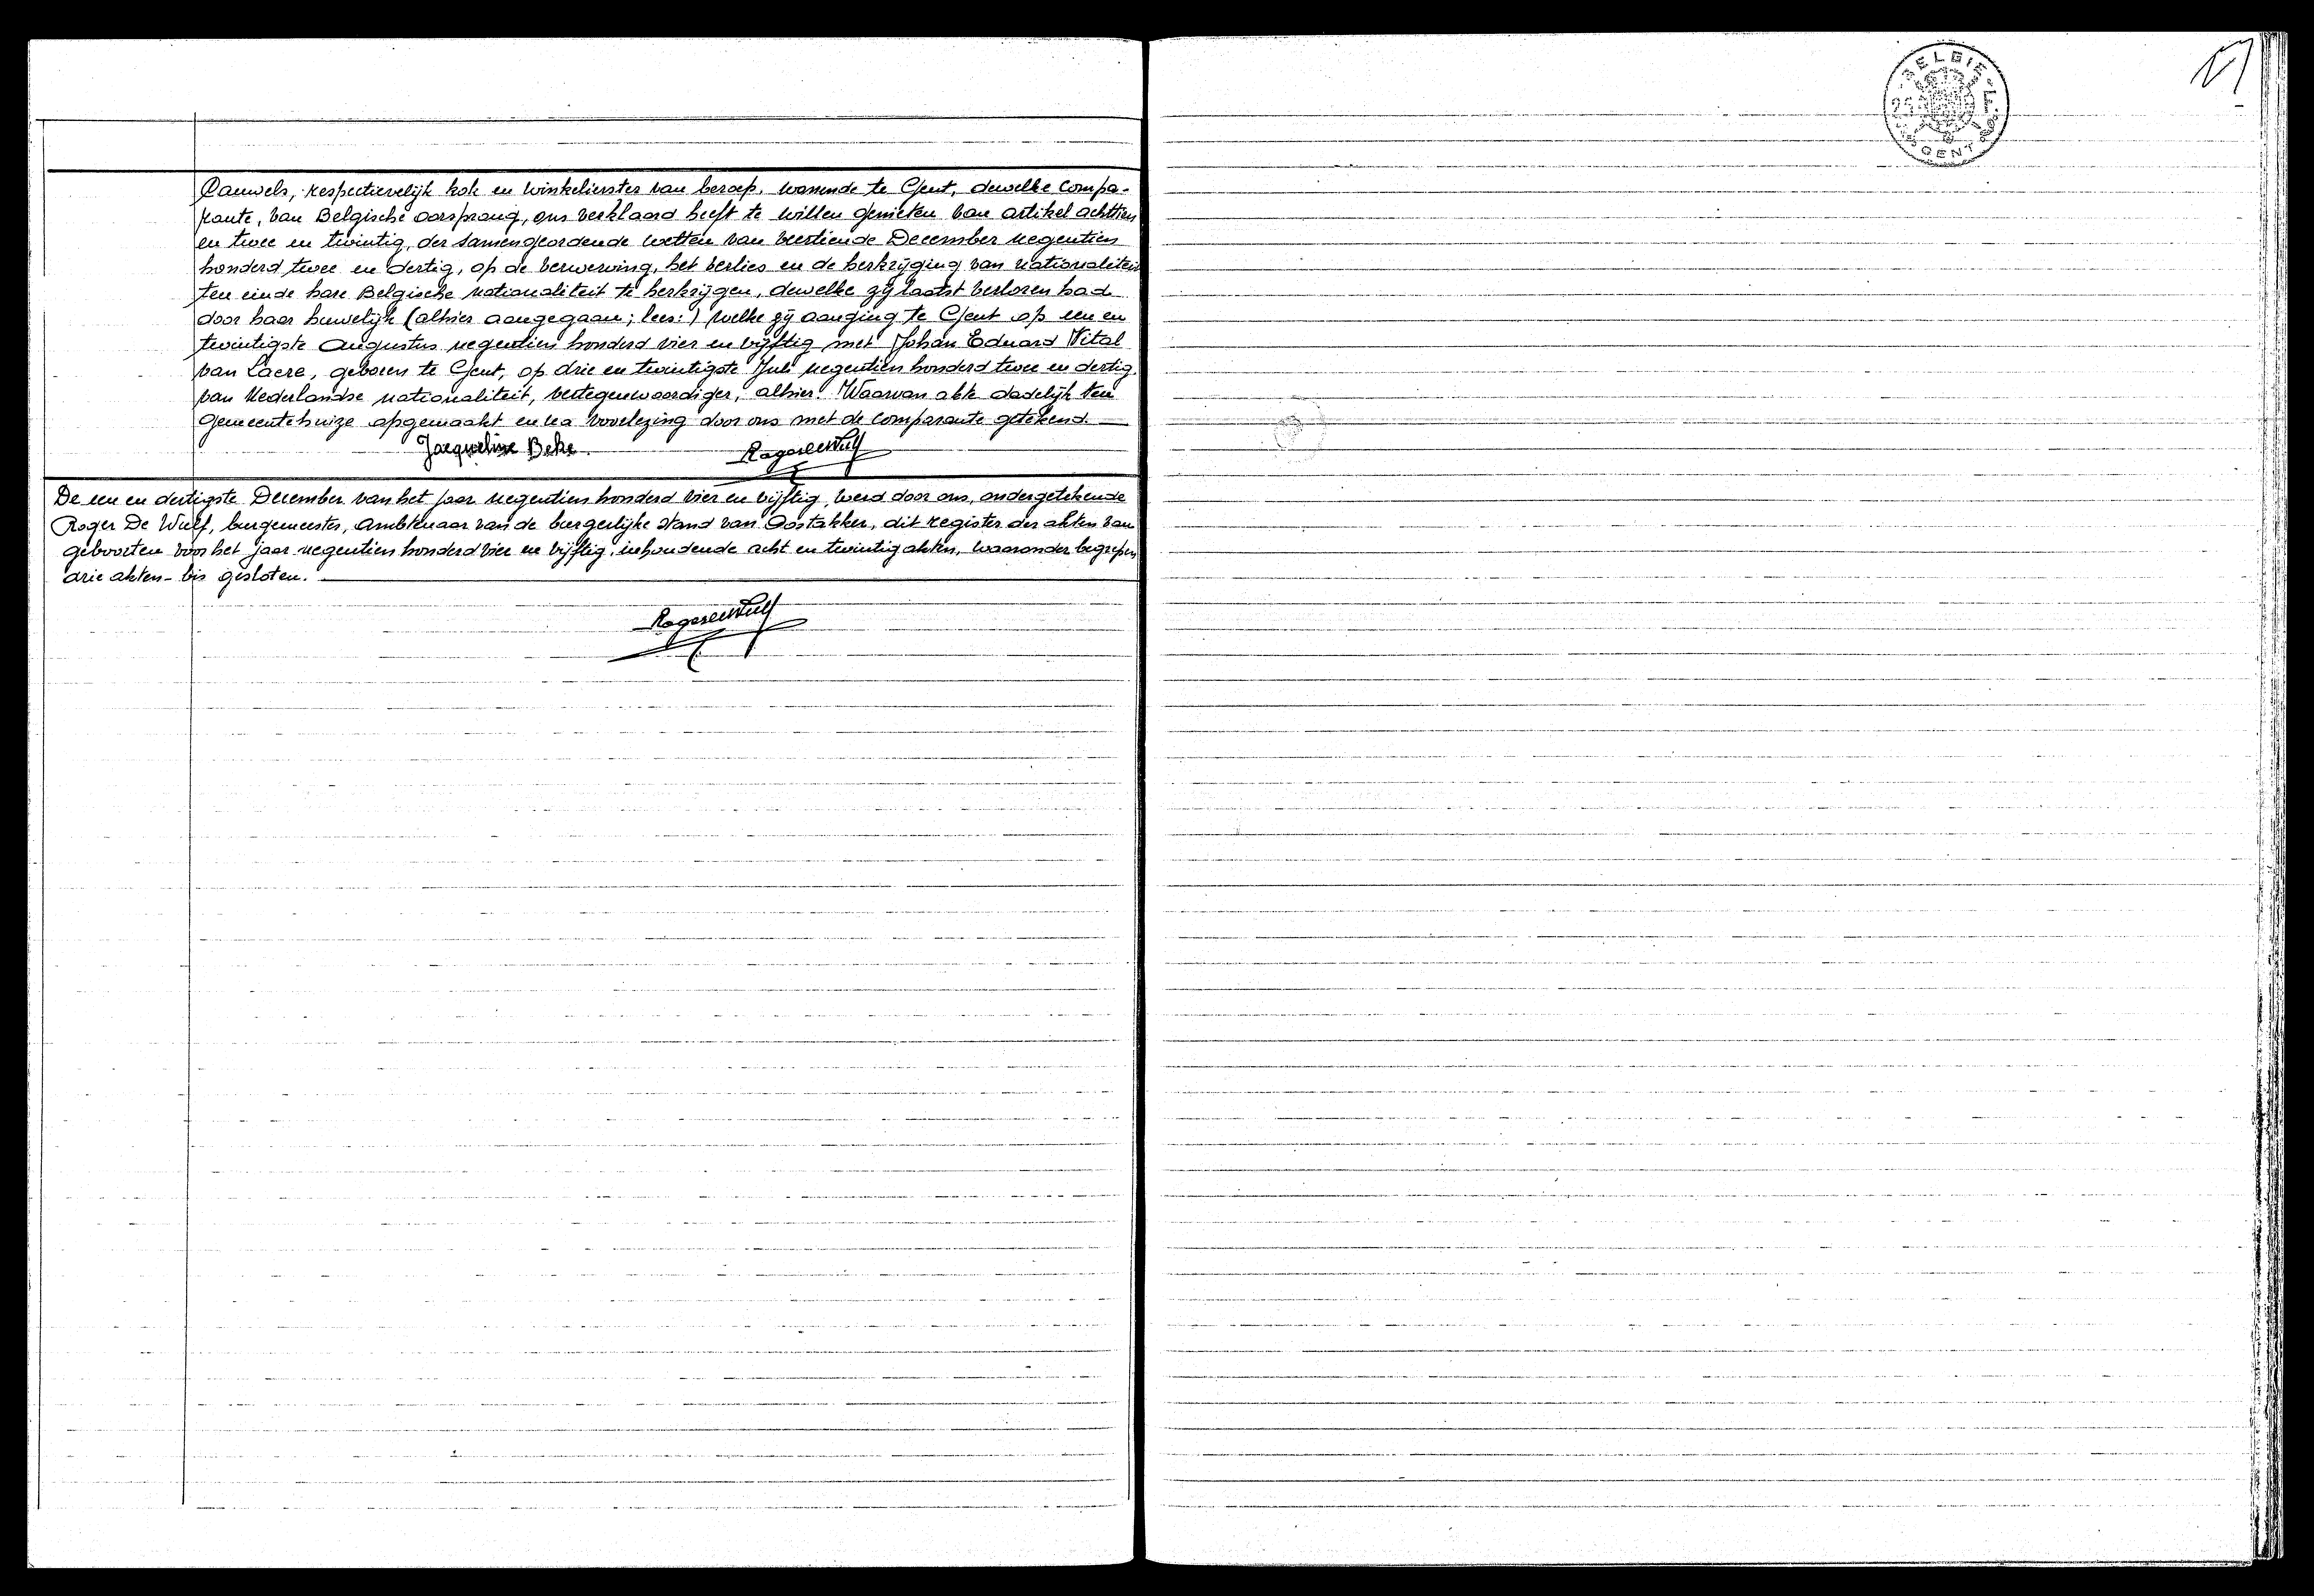 Pauwels, respectievelijk kok en winkelierster van beroep, wonende te Gent, dewelke compa-
rante, van Belgische oorsprong, ons verklaard heeft te willen genieten van artikel achttien
en twee en twintig, der samengeordende wetten van veertiende December negentien
honderd twee en dertig, op de verwerving, het verlies en de herkrijging van nationaliteit
ten einde hare Belgische nationaliteit te herkrijgen, dewelke zij laatst verloren had
door haar huwelijk (alhier aangegaan; lees:) welke zij aanging te Gent op een en
twintigste Augustus negentien honderd vier en vijftig met Johan Eduard Vital
van Laere, geboren te Gent, op drie en twintigste Juli negentien honderd twee en dertig,
van Nederlandse nationaliteit, vertegenwoordiger, alhier. Waarvan akte dadelijk ten
gemeentehuize opgemaakt en na voorlezing door ons met de comparante getekend.
Jacqueline Beke. Roger De Wulf
De een en dertigste December van het jaar negentien honderd vier en vijftig, werd door ons, ondergetekende
Roger De Wulf, burgemeester, ambtenaar van de burgerlijke stand van Oostakker, dit register der akten van
geboorten voor het jaar negentien honderd vier en vijftig, inhoudende acht en twintig akten, waaronder begrepen
drie akten-bis gesloten.
Roger De Wulf
BELGIE
GENT